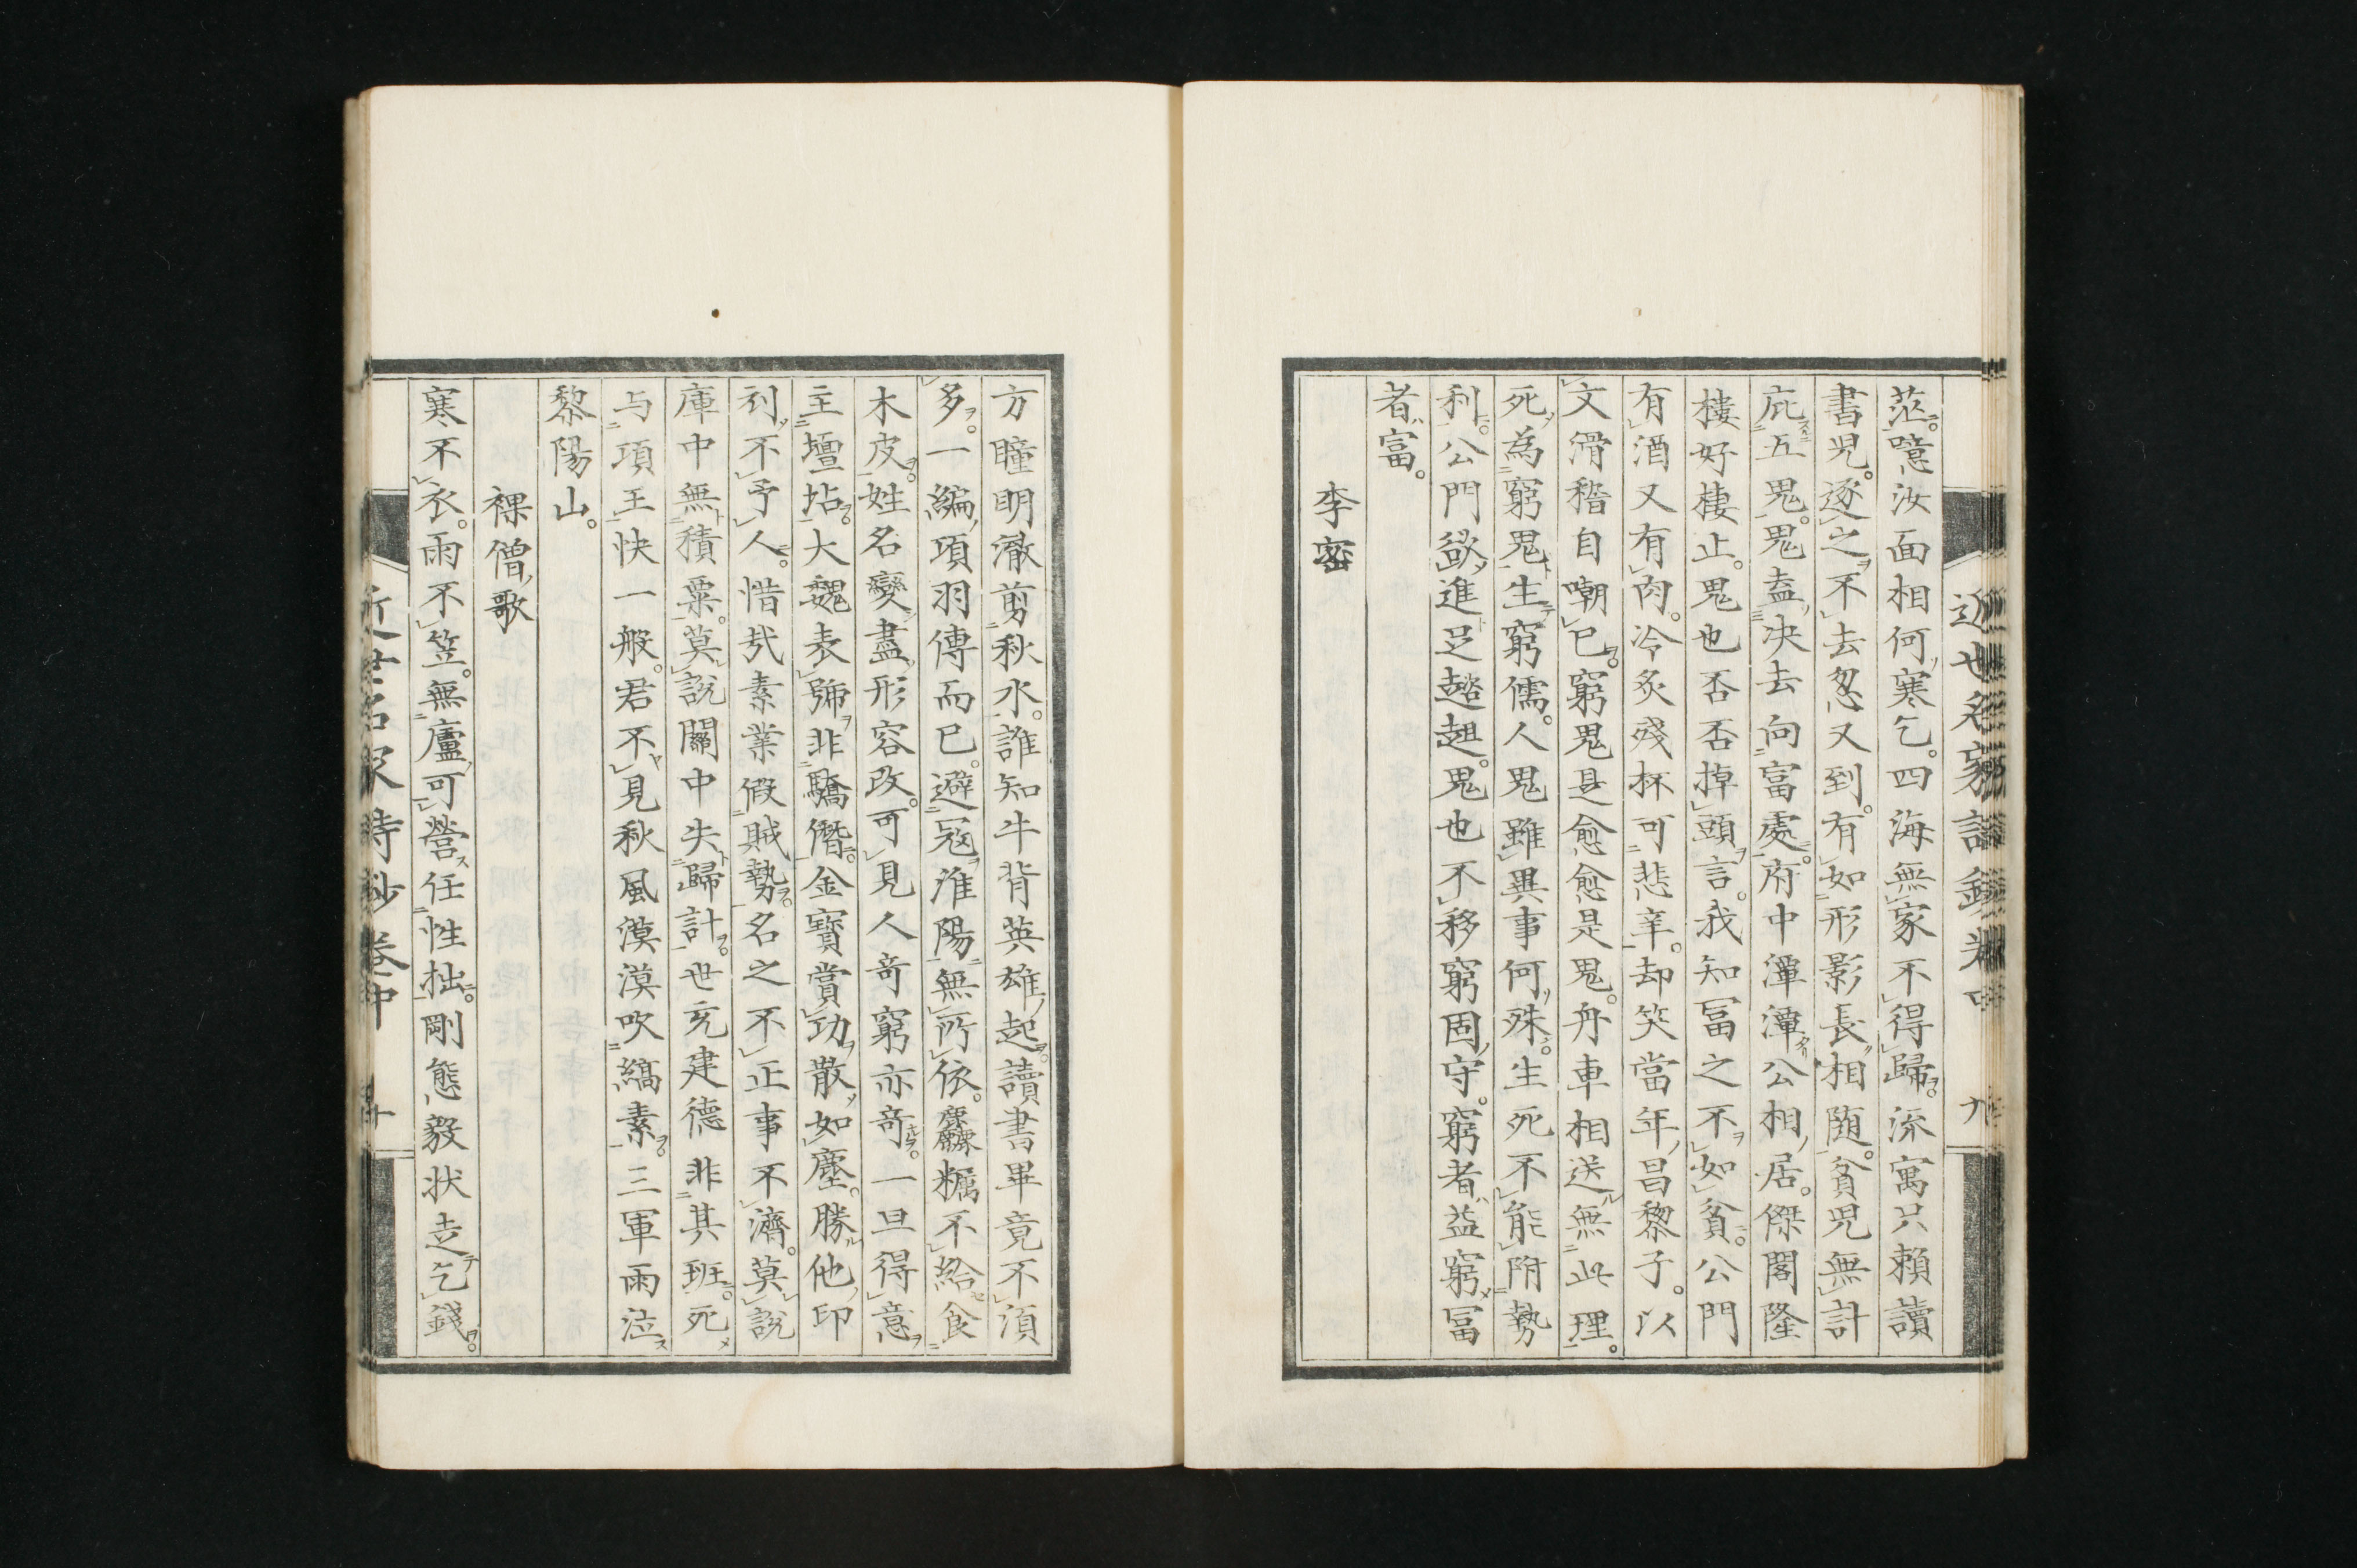 近世名家詩鈔卷中 九
茫噫汝面相何寒乞四海無家不得歸流寓只賴讀
書児逐之不去忽又到有如形影長相随貧児無計
庇五鬼鬼盍决去向富處府中潭潭公相居傑閣隆
樓好棲止鬼也否否掉頭言我知冨之不如貧公門
有酒又有肉冷炙殘杯可悲辛却笑當年昌黎子以
文滑稽自嘲已窮鬼是愈愈是鬼舟車相送無此理
死為窮鬼生窮儒人鬼雖異事何殊生死不能附勢
利公門欲進足趑趄鬼也不移窮固守窮者益窮冨
者富
李密
方瞳明澈剪秋水誰知牛背英雄起讀書畢竟不須
多一編項羽傳而已避寇淮陽無所依麤糲不給食
木皮姓名變盡形容改可見人竒窮亦竒一旦得意
主壇坫大魏表號非驕僭金寶賞功散如塵勝他印
刓不予人惜哉素業假賊勢名之不正事不濟莫說
庫中無積粟莫說關中失歸計世充建德非其班死
与項王快一般君不見秋風漠漠吹縞素三軍雨泣
黎陽山
裸僧歌
寒不衣雨不笠無廬可營任性拙剛態毅状走乞錢
近世名家詩鈔卷中